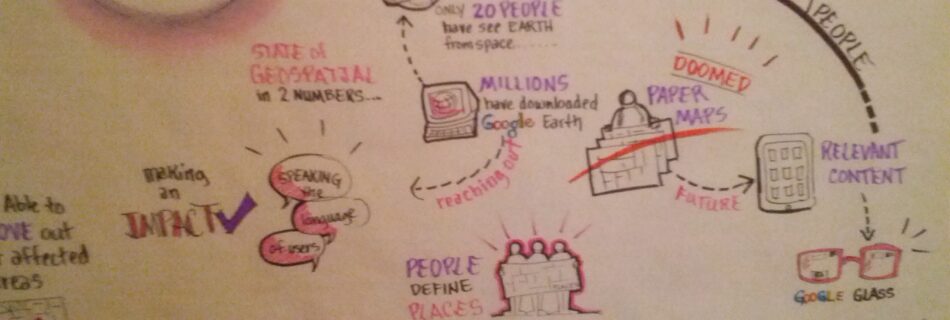 ONLY 20 PEOPLE
have see EARTH
from space.......
PEOPLE
STATE of
GEOSPATIAL
in 2 NUMBERS...
MILLIONS
have downloaded
Google Earth
DOOMED
PAPER
MAPS
RELEVANT
CONTENT
FUTURE
reaching out
making
an
IMPACT
SPEAKING
the
language
of users
Able to
OVE out
affected
reas
PEOPLE
DEFINE
PLACES
GOOGLE GLASS